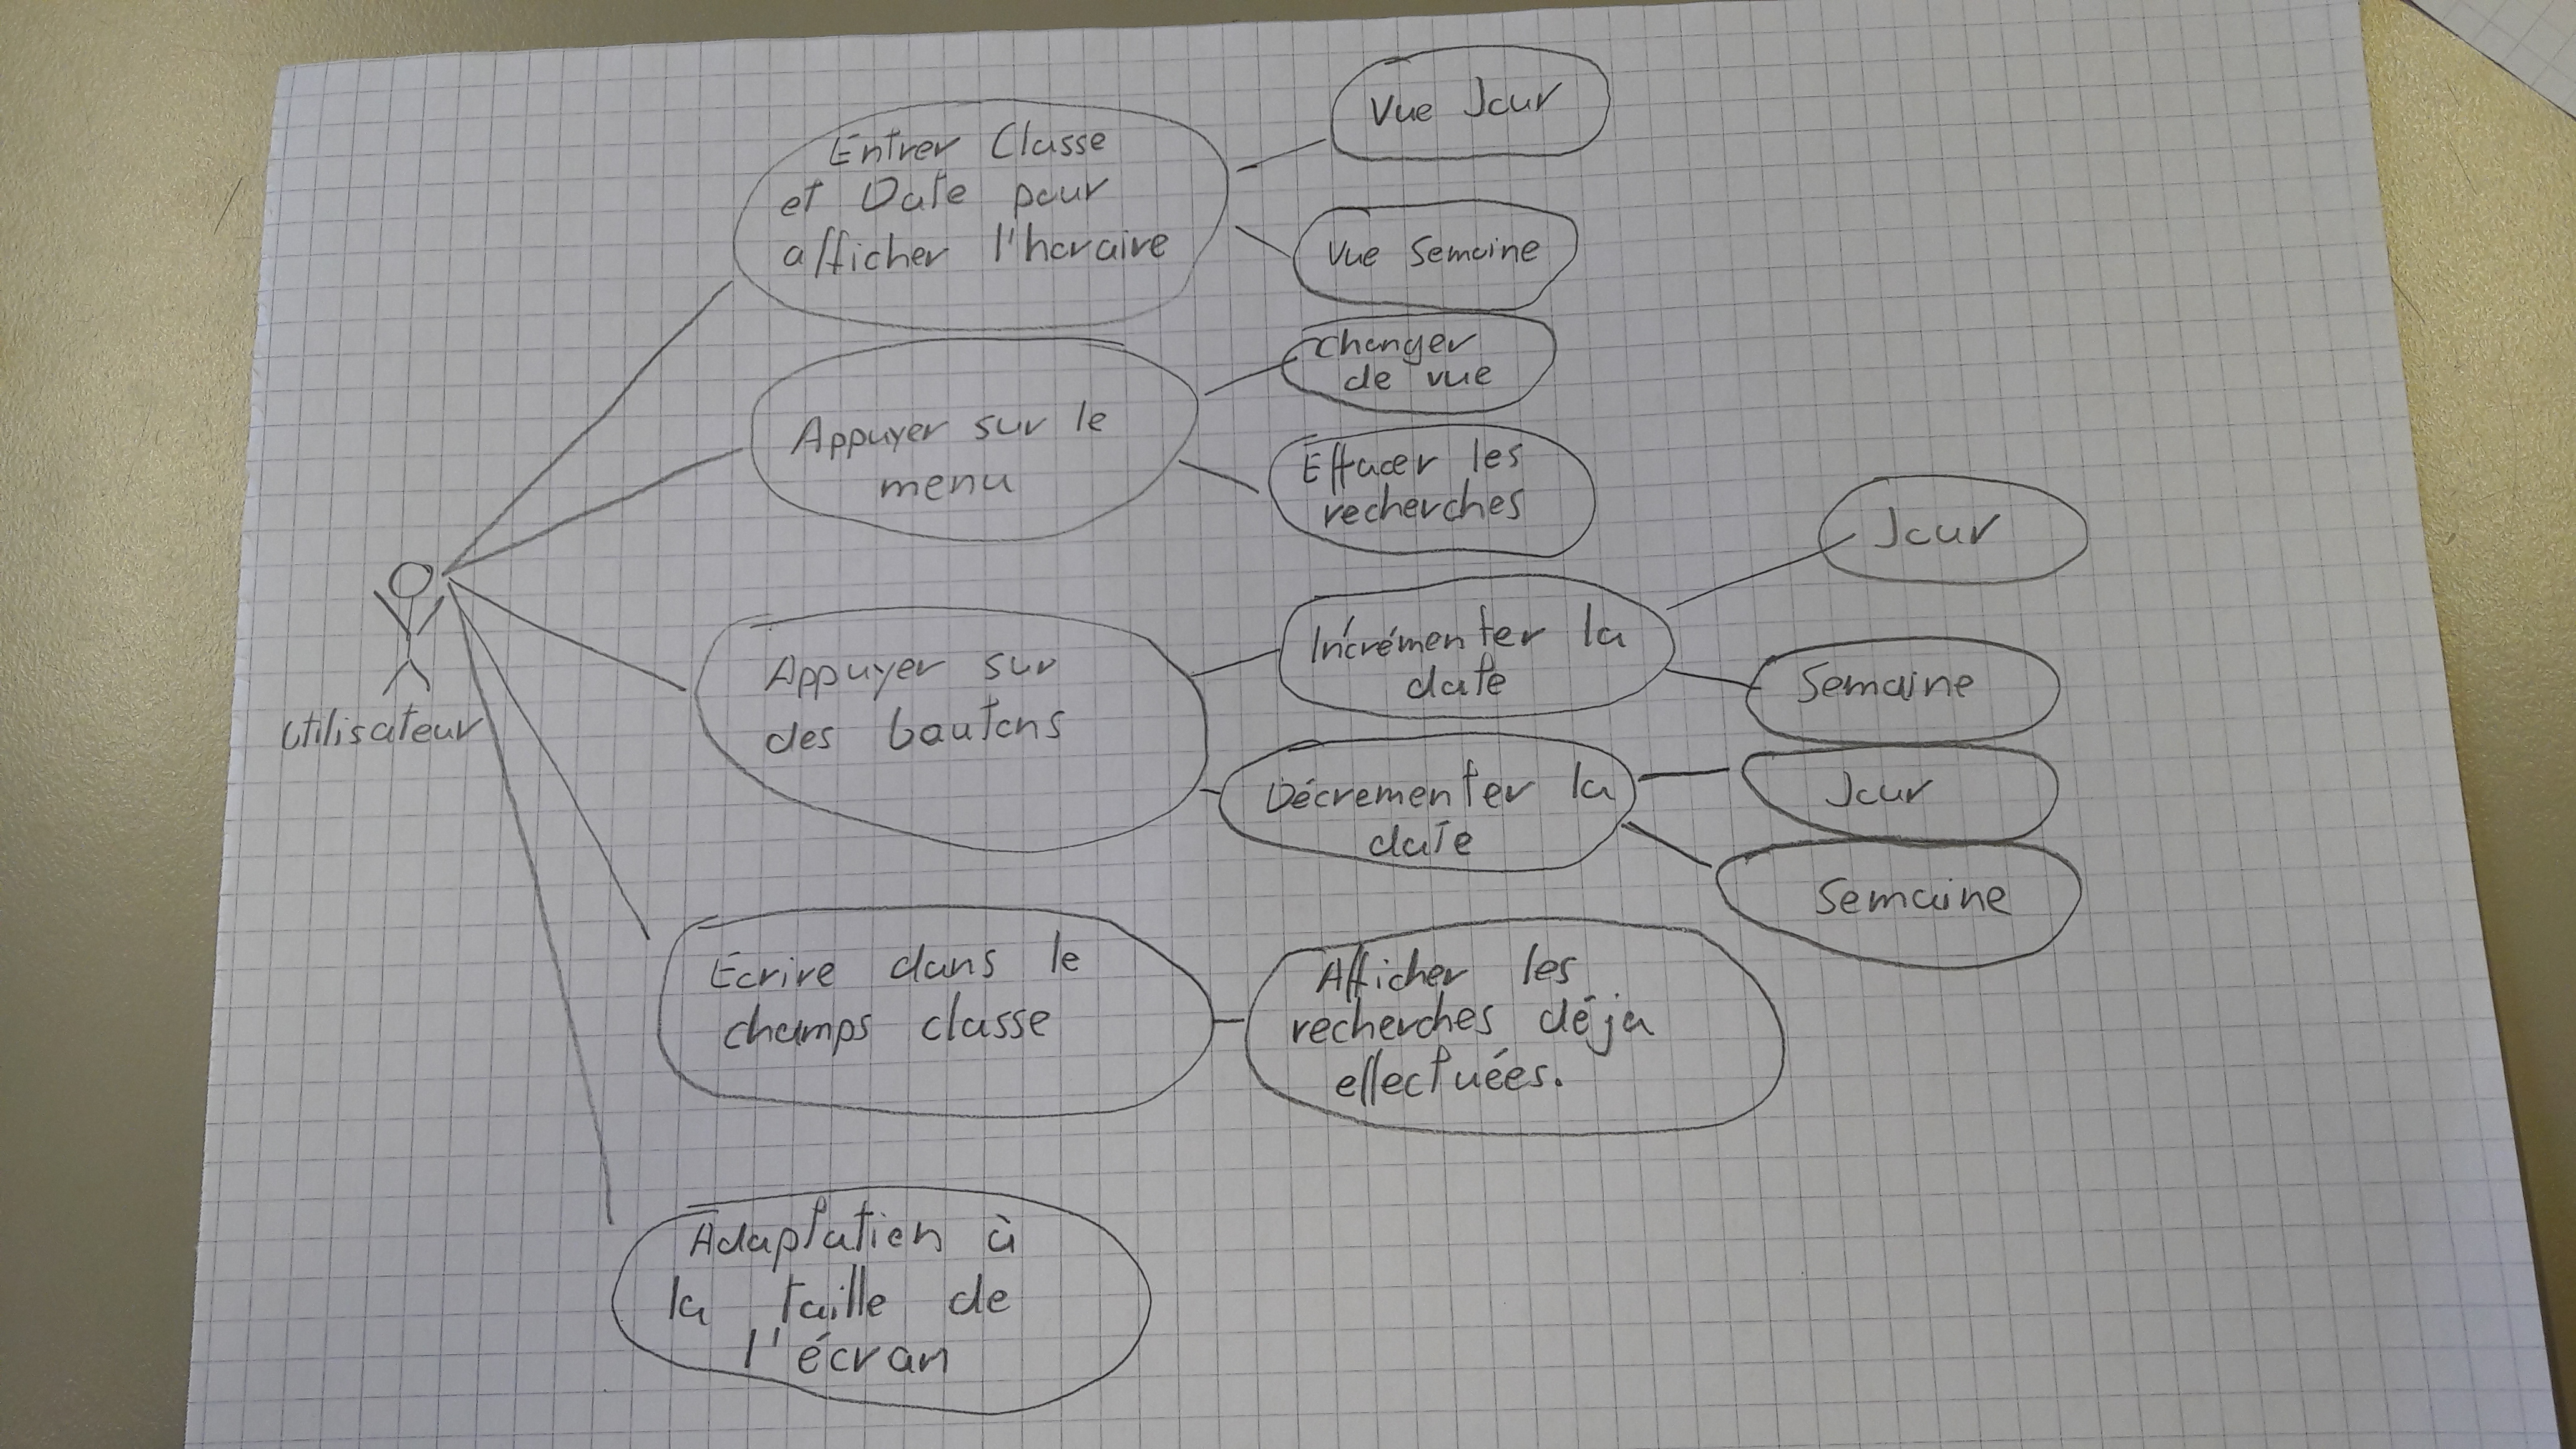 Entrer Classe
et Date pour
afficher l'horaire
Vue Jour
Vue Semaine
Appuyer sur le
menu
changer
de vue
Effacer les
recherches
Utilisateur
Appuyer sur
des boutons
Incrémenter la
date
Jour
Semaine
Décrementer la
date
Jour
Semaine
Ecrire dans le
champs classe
Afficher les
recherches déja
effectuées.
Adaptation à
la taille de
l'écran